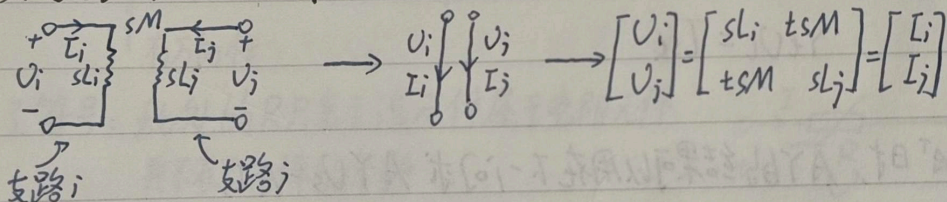 sM
+ I_i I_j +
U_i sL_i sL_j U_j
- -
支路i 支路j
U_i U_j
I_i I_j
[U_i U_j] = [sL_i ±sM ±sM sL_j] = [I_i I_j]